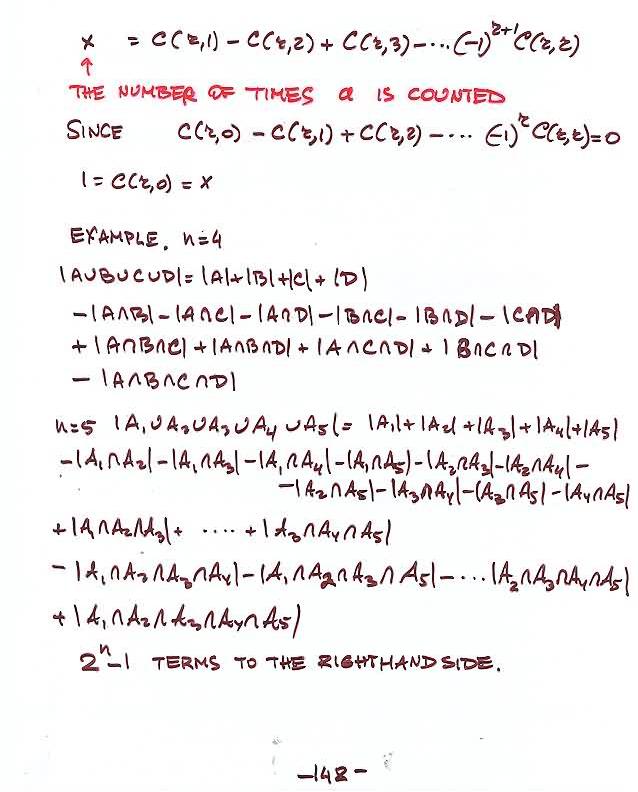 x = C(r,1) - C(r,2) + C(r,3) - ... (-1)^{r+1} C(r,r)
↑
THE NUMBER OF TIMES a IS COUNTED
SINCE C(r,0) - C(r,1) + C(r,2) - ... (-1)^r C(r,r) = 0
1 = C(r,0) = x
EXAMPLE. n=4
|A∪B∪C∪D| = |A|+|B|+|C|+|D|
-|A∩B|-|A∩C|-|A∩D|-|B∩C|-|B∩D|-|C∩D|
+|A∩B∩C|+|A∩B∩D|+|A∩C∩D|+|B∩C∩D|
-|A∩B∩C∩D|
n=5 |A₁∪A₂∪A₃∪A₄∪A₅| = |A₁|+|A₂|+|A₃|+|A₄|+|A₅|
-|A₁∩A₂|-|A₁∩A₃|-|A₁∩A₄|-|A₁∩A₅|-|A₂∩A₃|-|A₂∩A₄|-
-|A₂∩A₅|-|A₃∩A₄|-|A₃∩A₅|-|A₄∩A₅|
+|A₁∩A₂∩A₃|+ .... +|A₃∩A₄∩A₅|
-|A₁∩A₂∩A₃∩A₄|-|A₁∩A₂∩A₃∩A₅|-...|A₂∩A₃∩A₄∩A₅|
+|A₁∩A₂∩A₃∩A₄∩A₅|
2^n-1 TERMS TO THE RIGHTHAND SIDE.
-148-